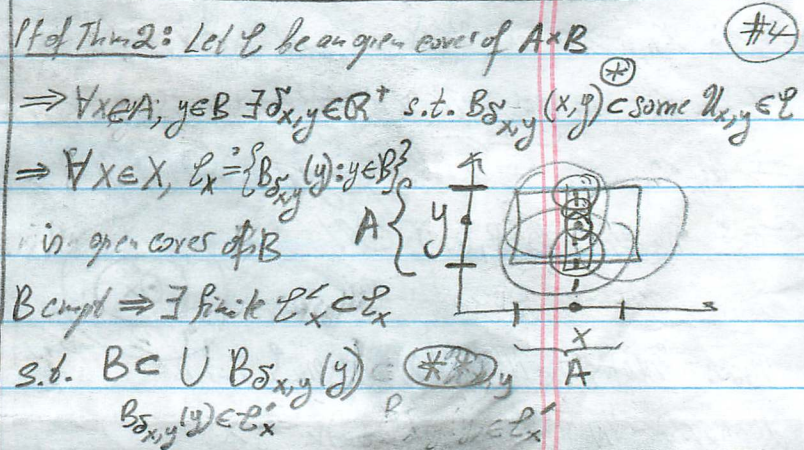 Pf of Thm 2: Let 𝒞 be an open cover of A×B #4
⇒ ∀x∈A, y∈B ∃ δ_{x,y}∈R⁺ s.t. B_{δ_{x,y}}(x,y) ⊂ some U_{x,y}∈𝒞 (*)
⇒ ∀x∈X, 𝒞_x = {B_{δ_{x,y}}(y): y∈B}
is open cover of B A { y
B cmpt ⇒ ∃ finite 𝒞'_x ⊂ 𝒞_x
x
s.t. B ⊂ ∪ B_{δ_{x,y}}(y) (**) A
B_{δ_{x,y}}(y)∈𝒞'_x